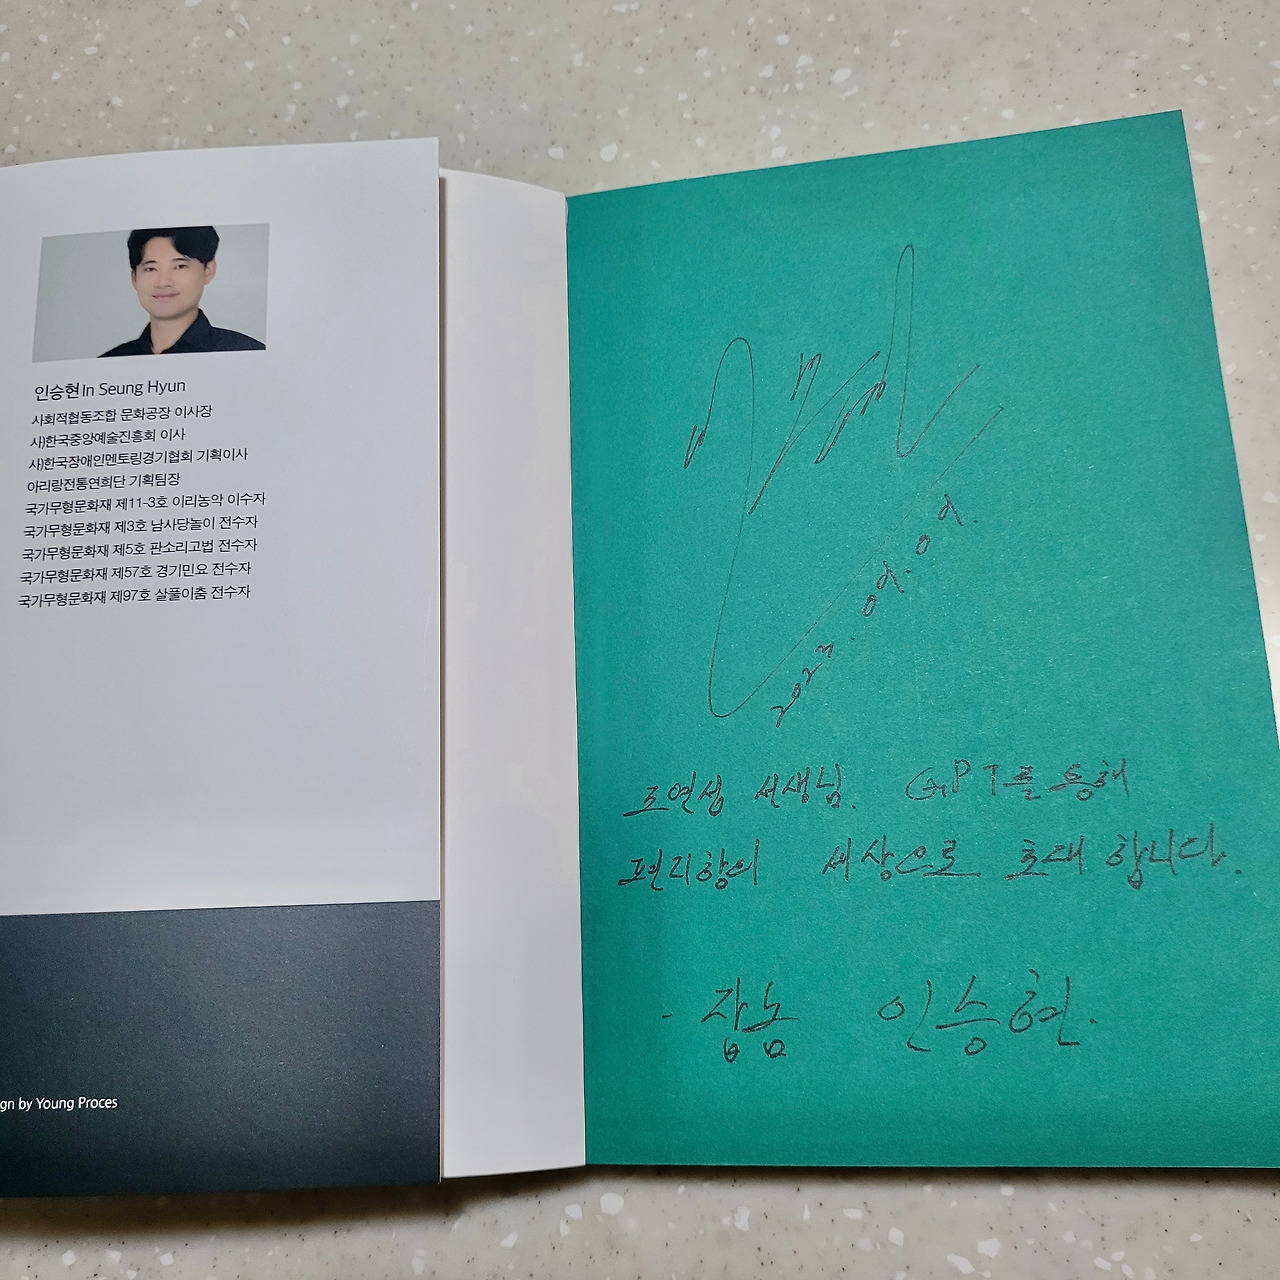 인승현 In Seung Hyun
사회적협동조합 문화공장 이사장
사)한국중앙예술진흥회 이사
사)한국장애인멘토링경기협회 기획이사
아리랑전통연희단 기획팀장
국가무형문화재 제11-3호 이리농악 이수자
국가무형문화재 제3호 남사당놀이 전수자
국가무형문화재 제5호 판소리고법 전수자
국가무형문화재 제57호 경기민요 전수자
국가무형문화재 제97호 살풀이춤 전수자
gn by Young Proces
조연성 선생님. GPT를 통해
편리함의 세상으로 초대 합니다.
- 잡놈 인승현.